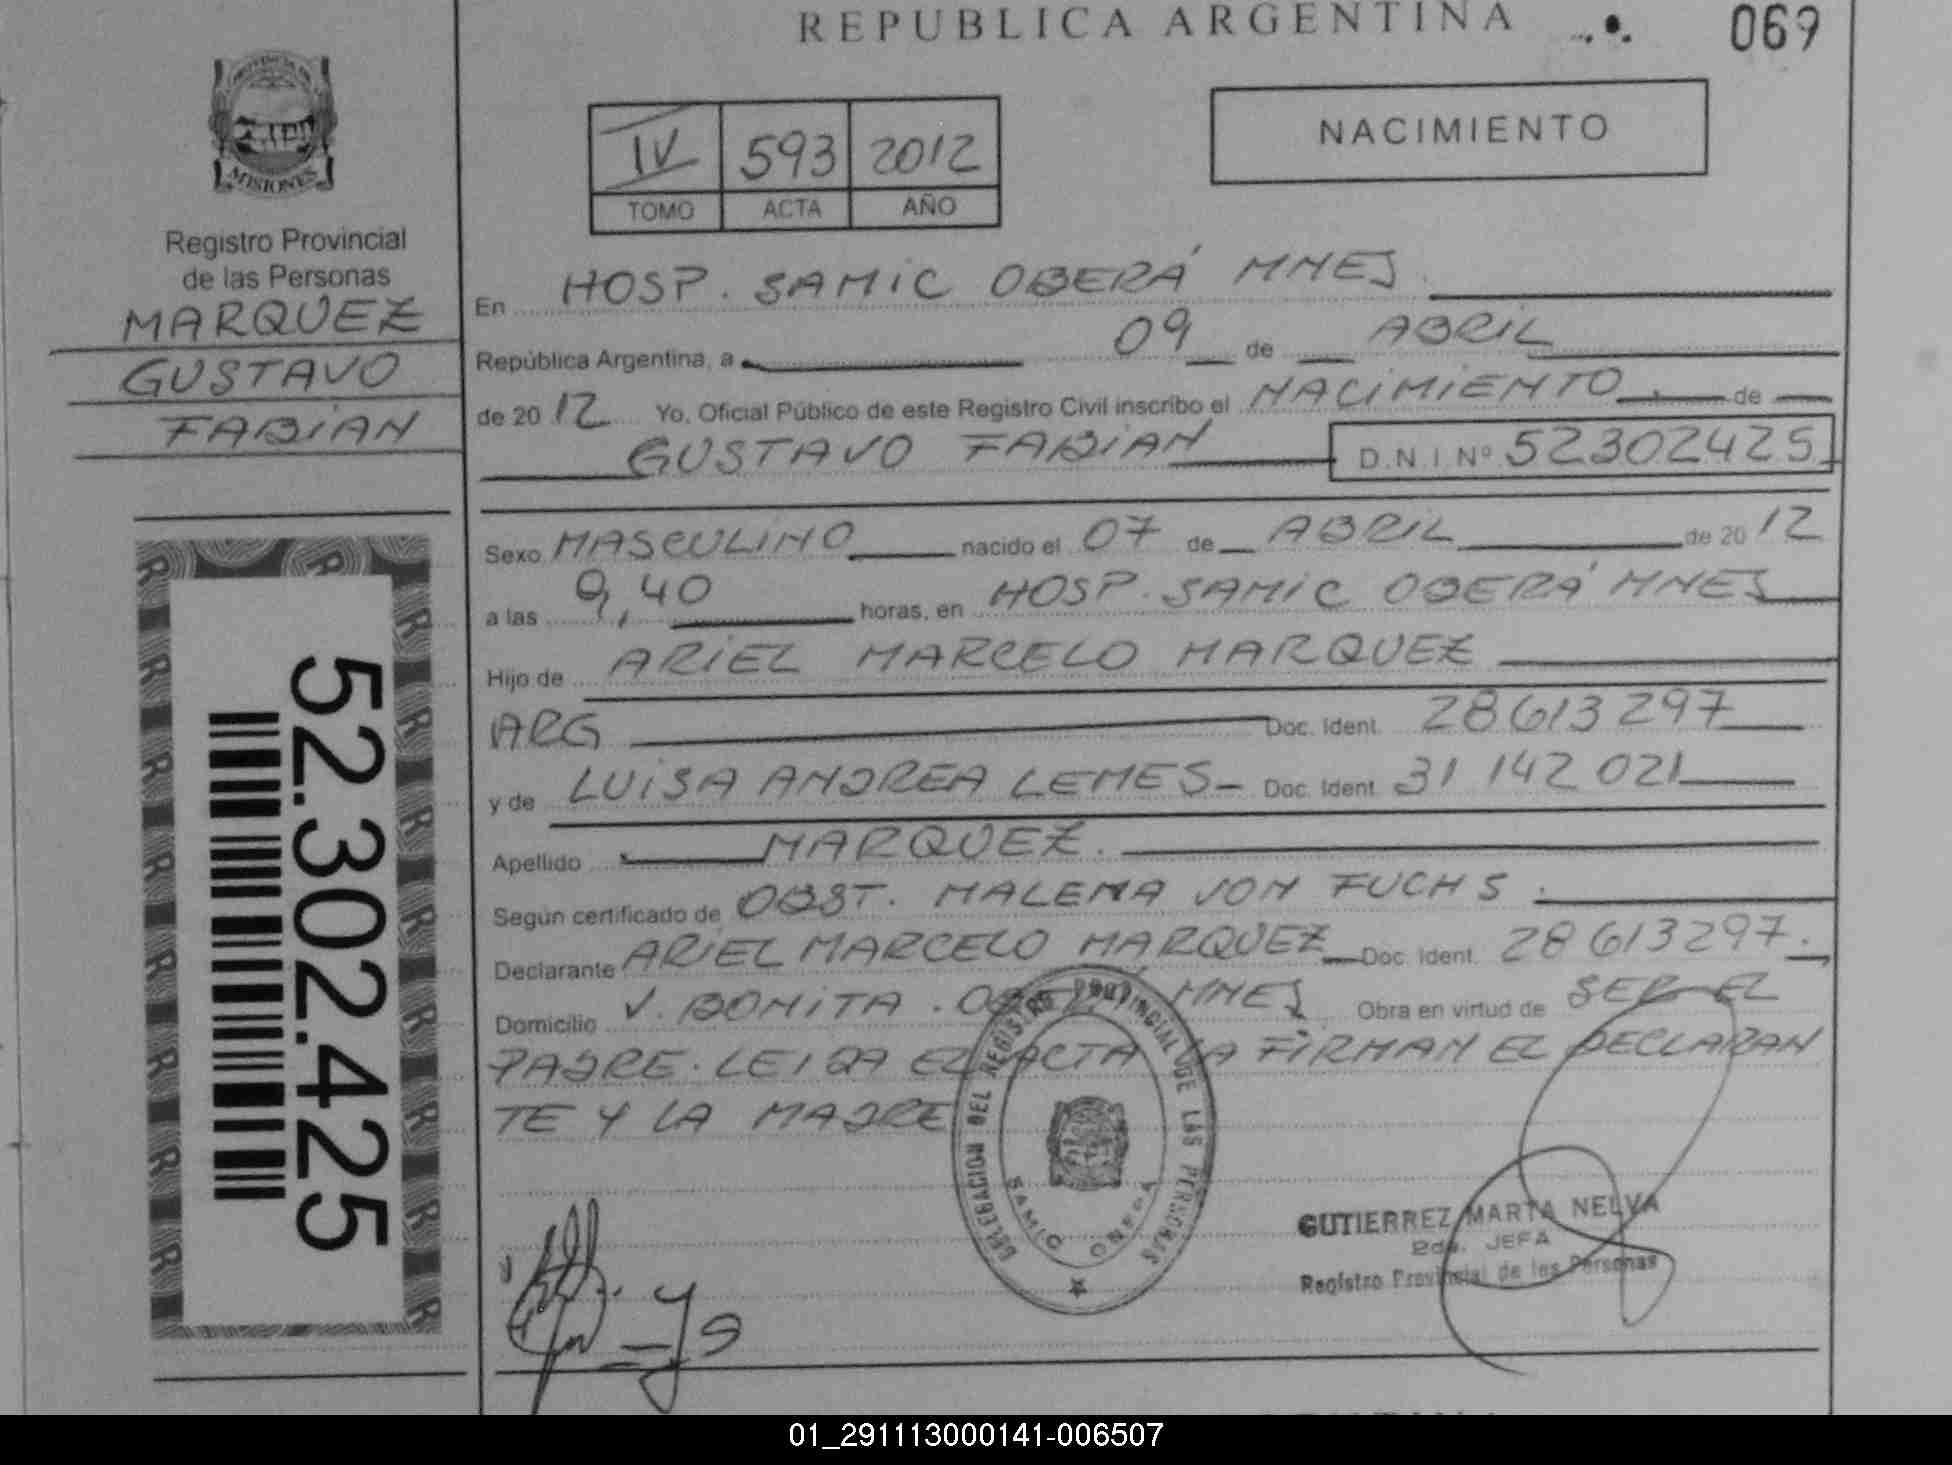 REPUBLICA ARGENTINA
069
PROVINCIA DE
MISIONES
Registro Provincial
de las Personas
MARQUEZ
GUSTAVO
FABIAN
52.302.425
IV 593 2012
TOMO ACTA AÑO
NACIMIENTO
En HOSP. SAMIC OBERÁ MNES
República Argentina, a 09 de ABRIL
de 2012 Yo, Oficial Público de este Registro Civil inscribo el NACIMIENTO de
GUSTAVO FABIAN D.N.I. Nº 52302425
Sexo MASCULINO nacido el 07 de ABRIL de 2012
a las 9,40 horas, en HOSP. SAMIC OBERÁ MNES
Hijo de ARIEL MARCELO MARQUEZ
ARG Doc. Ident. 28613297
y de LUISA ANDREA LEMES Doc. Ident. 31 142 021
Apellido MARQUEZ.
Según certificado de OBST. MALENA VON FUCHS.
Declarante ARIEL MARCELO MARQUEZ Doc. Ident. 28613297.
Domicilio V. BONITA. MNES Obra en virtud de SER EL
PADRE. LEIDA EL ACTA LA FIRMAN EL DECLARAN
TE Y LA MADRE
DELEGACION DEL REGISTRO PROVINCIAL DE LAS PERSONAS
SAMIC OBERA
GUTIERREZ MARTA NELVA
2da. JEFA
Registro Provincial de las Personas
01_291113000141-006507